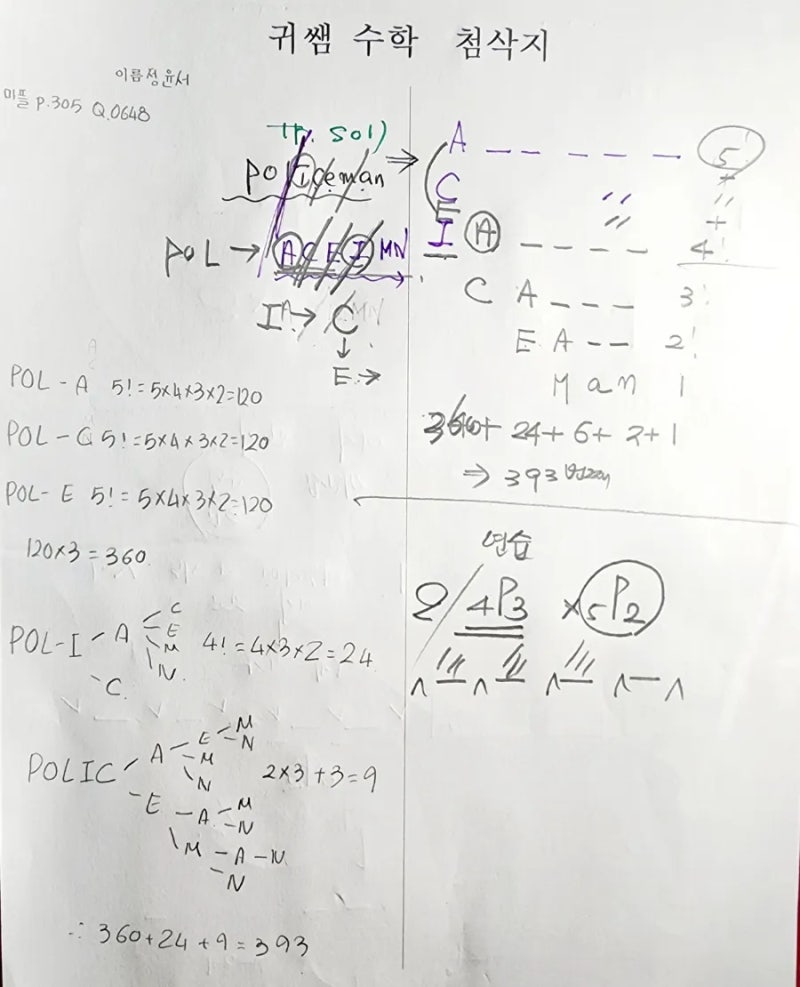 귀쌤 수학 첨삭지
이름정윤서
미플 P.305 Q.0648
Tr. Sol)
policeman
POL → A C E I MN
I A → C
↓
E →
⇒ A _ _ _ _ _ 5!
C " +
E " +
I A _ _ _ _ 4!
C A _ _ _ 3!
E A _ _ 2!
M a n 1
360 + 24 + 6 + 2 + 1
⇒ 393번째
POL - A 5! = 5×4×3×2=120
POL - C 5! = 5×4×3×2=120
POL - E 5! = 5×4×3×2=120
120×3 = 360
POL-I - A C E M N 4! = 4×3×2 = 24
C
POLIC A E M N
M
N
2×3 + 3 = 9
E - A M N
M - A - N
N
∴ 360+24+9 = 393
연습
4P3 × 5P2